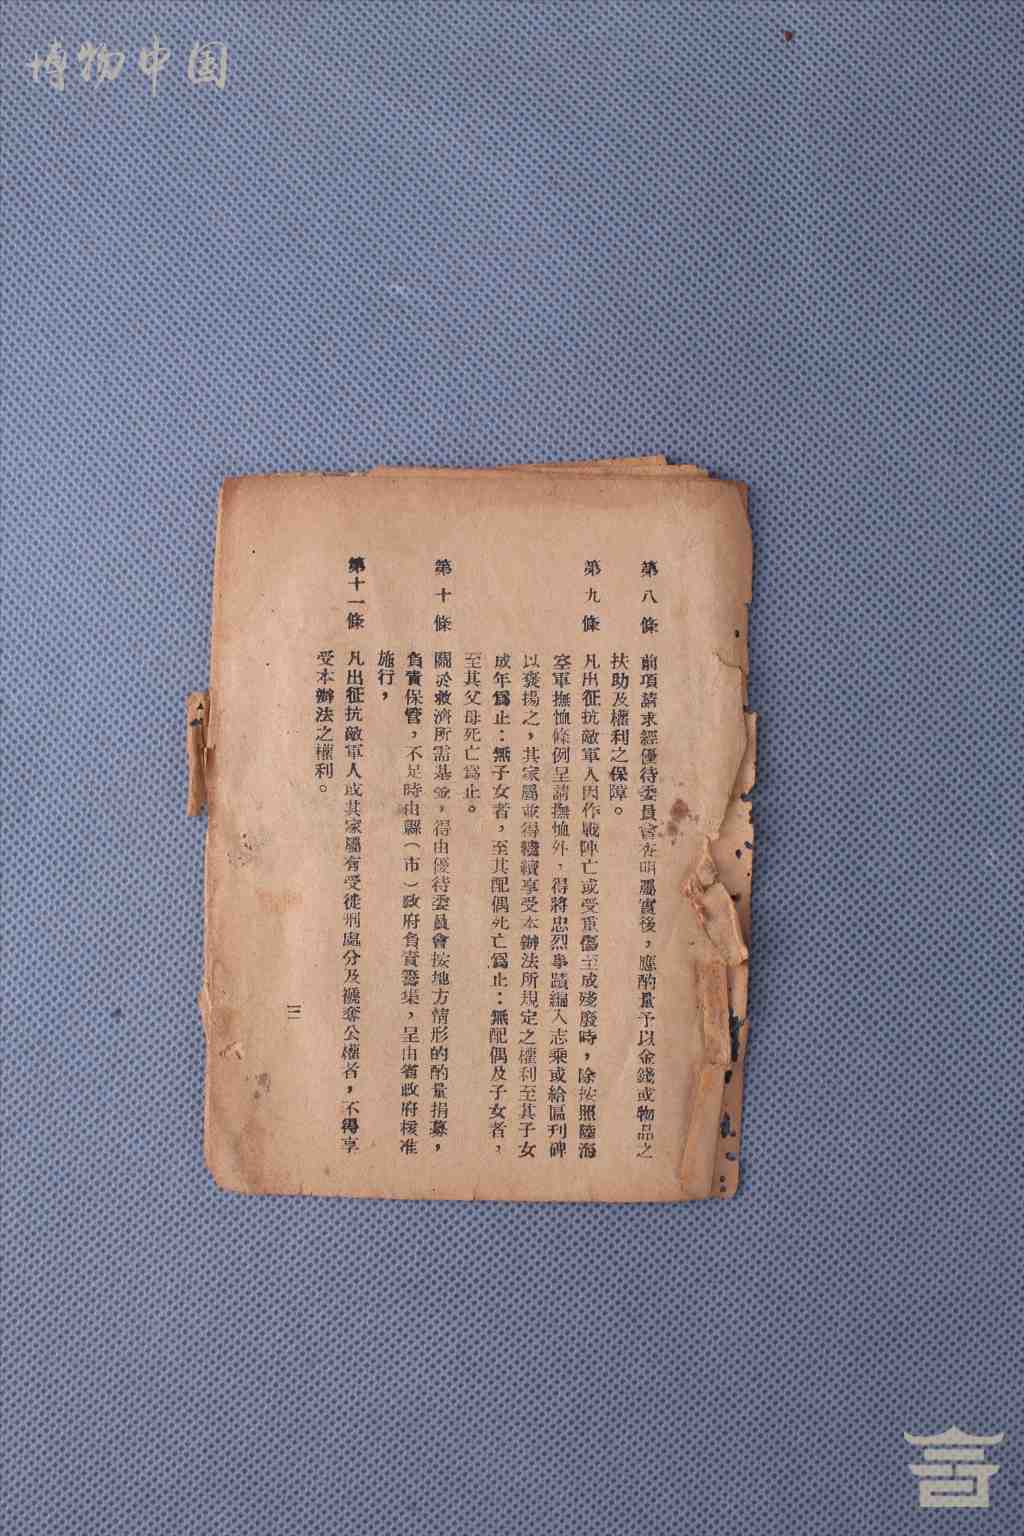 博物中国
第八條
前項請求經優待委員會查明屬實後，應酌量予以金錢或物品之
扶助及權利之保障。
第九條
凡出征抗敵軍人因作戰陣亡或受重傷至成殘廢時，除按照陸海
空軍撫恤條例呈請撫恤外，得將忠烈事蹟編入志乘或給區刊碑
以褒揚之，其家屬並得繼續享受本辦法所規定之權利至其子女
成年爲止：無子女者，至其配偶死亡爲止：無配偶及子女者，
至其父母死亡爲止。
第十條
關於救濟所需基金，得由優待委員會按地方情形的酌量捐募，
負責保管，不足時由縣（市）政府負責籌集，呈由省政府核准
施行，
第十一條
凡出征抗敵軍人或其家屬有受徒刑處分及褫奪公權者，不得享
受本辦法之權利。
三